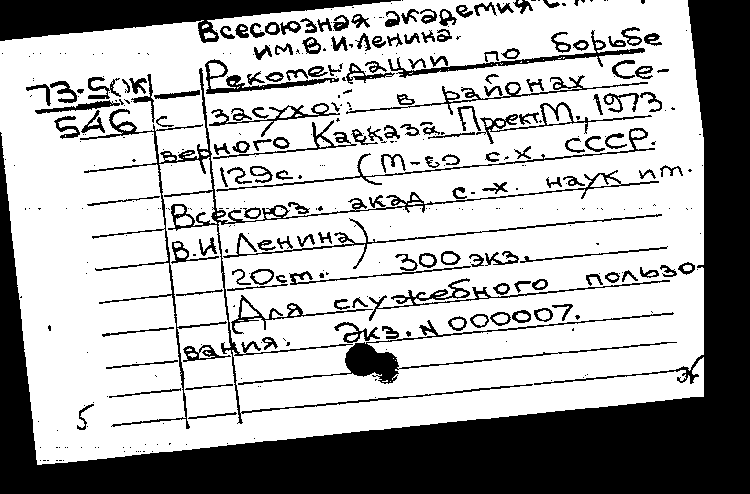 Всесоюзная академия с.
им. В.И. Ленина.
73-50к Рекомендации по борьбе
546 с засухой в районах Се-
верного Кавказа. Проект. М., 1973.
129с. (М-во с.х. СССР.
Всесоюз. акад. с.-х. наук им.
В.И. Ленина)
20см. 300 экз.
Для служебного пользо-
вания. Экз. N 000007.
5